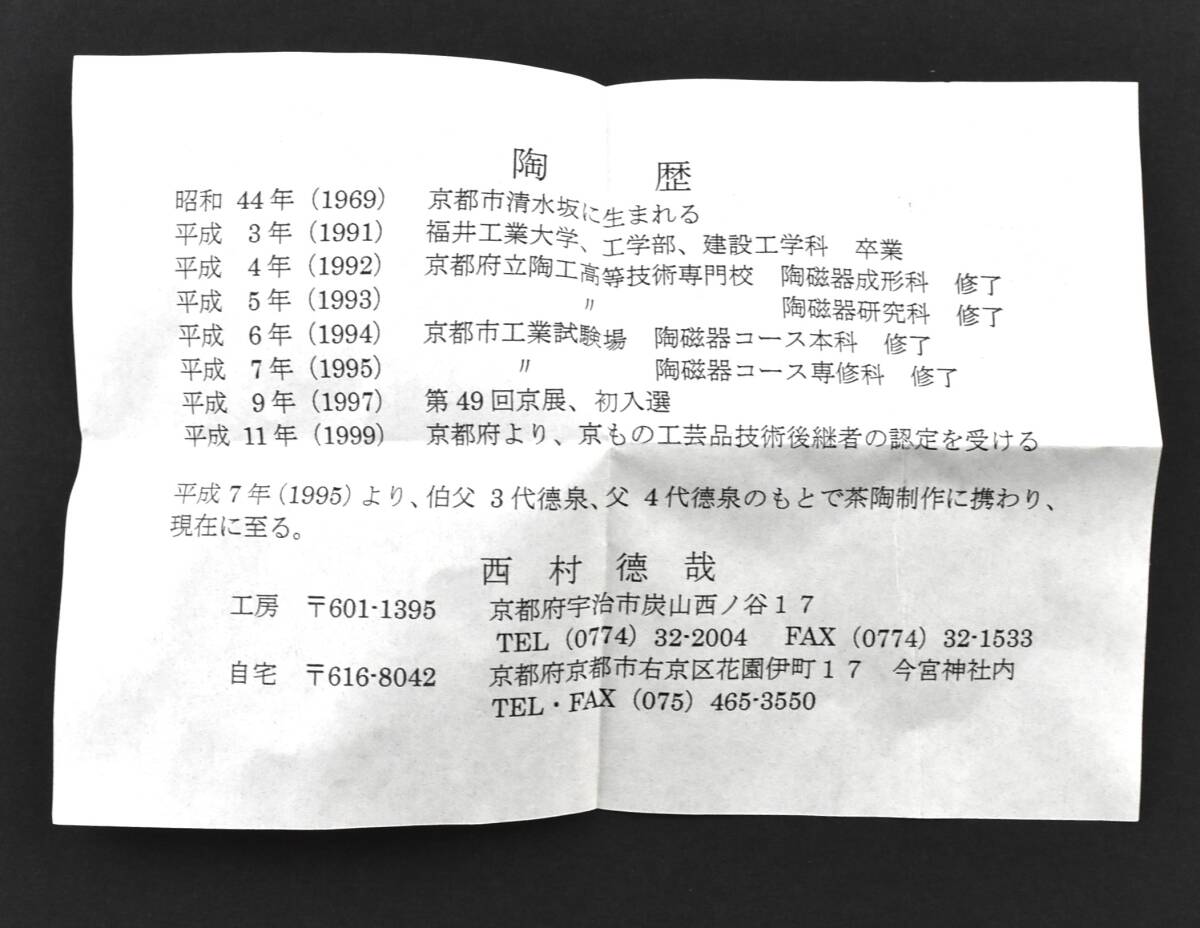 陶 歴
昭和 44年 (1969) 京都市清水坂に生まれる
平成 3年 (1991) 福井工業大学、工学部、建設工学科 卒業
平成 4年 (1992) 京都府立陶工高等技術専門校 陶磁器成形科 修了
平成 5年 (1993) 〃 陶磁器研究科 修了
平成 6年 (1994) 京都市工業試験場 陶磁器コース本科 修了
平成 7年 (1995) 〃 陶磁器コース専修科 修了
平成 9年 (1997) 第49回京展、初入選
平成 11年 (1999) 京都府より、京もの工芸品技術後継者の認定を受ける
平成7年(1995)より、伯父 3代德泉、父 4代德泉のもとで茶陶制作に携わり、
現在に至る。
西 村 德 哉
工房 〒601-1395 京都府宇治市炭山西ノ谷17
TEL (0774) 32-2004 FAX (0774) 32-1533
自宅 〒616-8042 京都府京都市右京区花園伊町17 今宮神社内
TEL・FAX (075) 465-3550